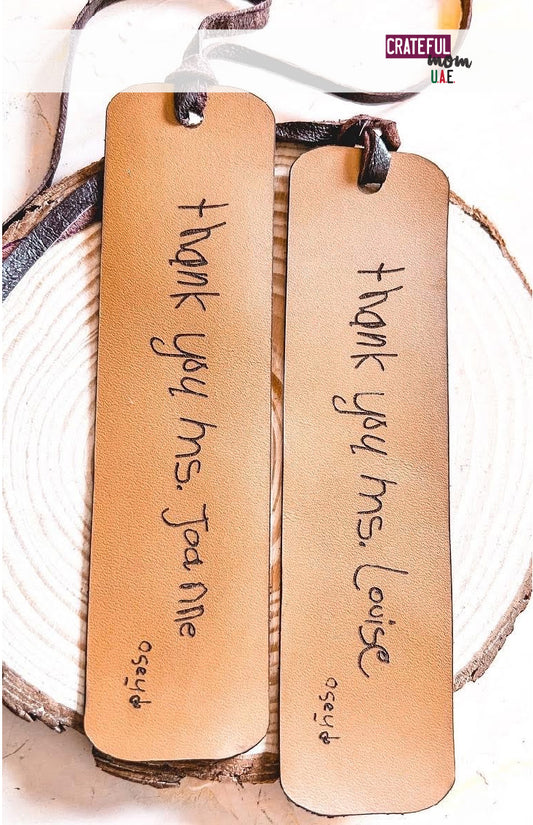 CRATEFUL
mom
U.A.E.
thank you ms. Joanne
oseyb
thank you ms. Louise
oseyb